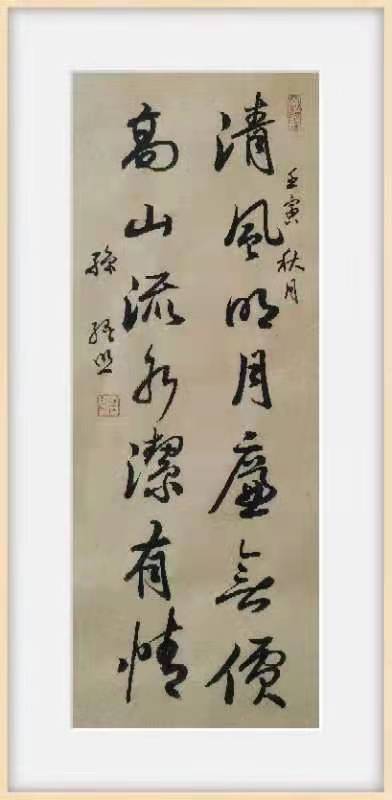 清風明月廉無價
高山流水潔有情
壬寅秋月
孫